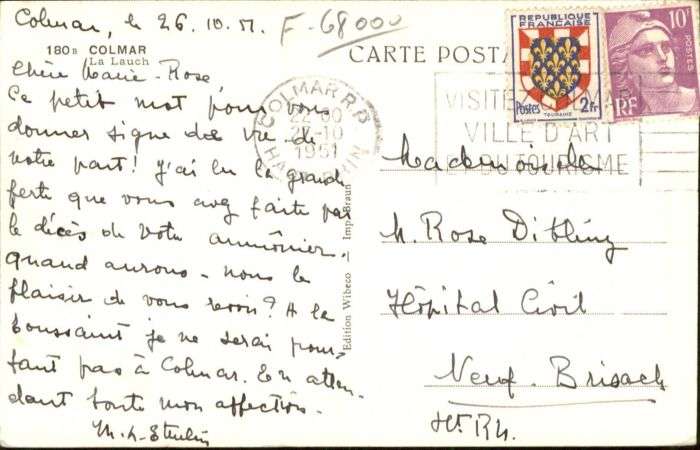 Colmar, le 26.10.51
F-68000
180B COLMAR
La Lauch
CARTE POSTA
Chère Marie-Rose
Ce petit mot pour vous
donner signe de vie de
notre part! J'ai lu la grande
perte que vous avez faite par
le décès de votre aumônier.
Quand aurons-nous le
plaisir de vous revoir? A la
Toussaint je ne serai pour-
tant pas à Colmar. En atten-
dant toute mon affection.
Edition Wibeco — Imp. Braun
COLMAR R.P.
22-00
27-10
1951
HAUT-RHIN
VISITEZ COLMAR
VILLE D'ART
ET DU TOURISME
REPUBLIQUE
FRANÇAISE
Postes 2fr
TOURAINE
10F
POSTES
RF
Mademoiselle
M. Rose
Hôpital Civil
Neuf-Brisach
Ht Rh.